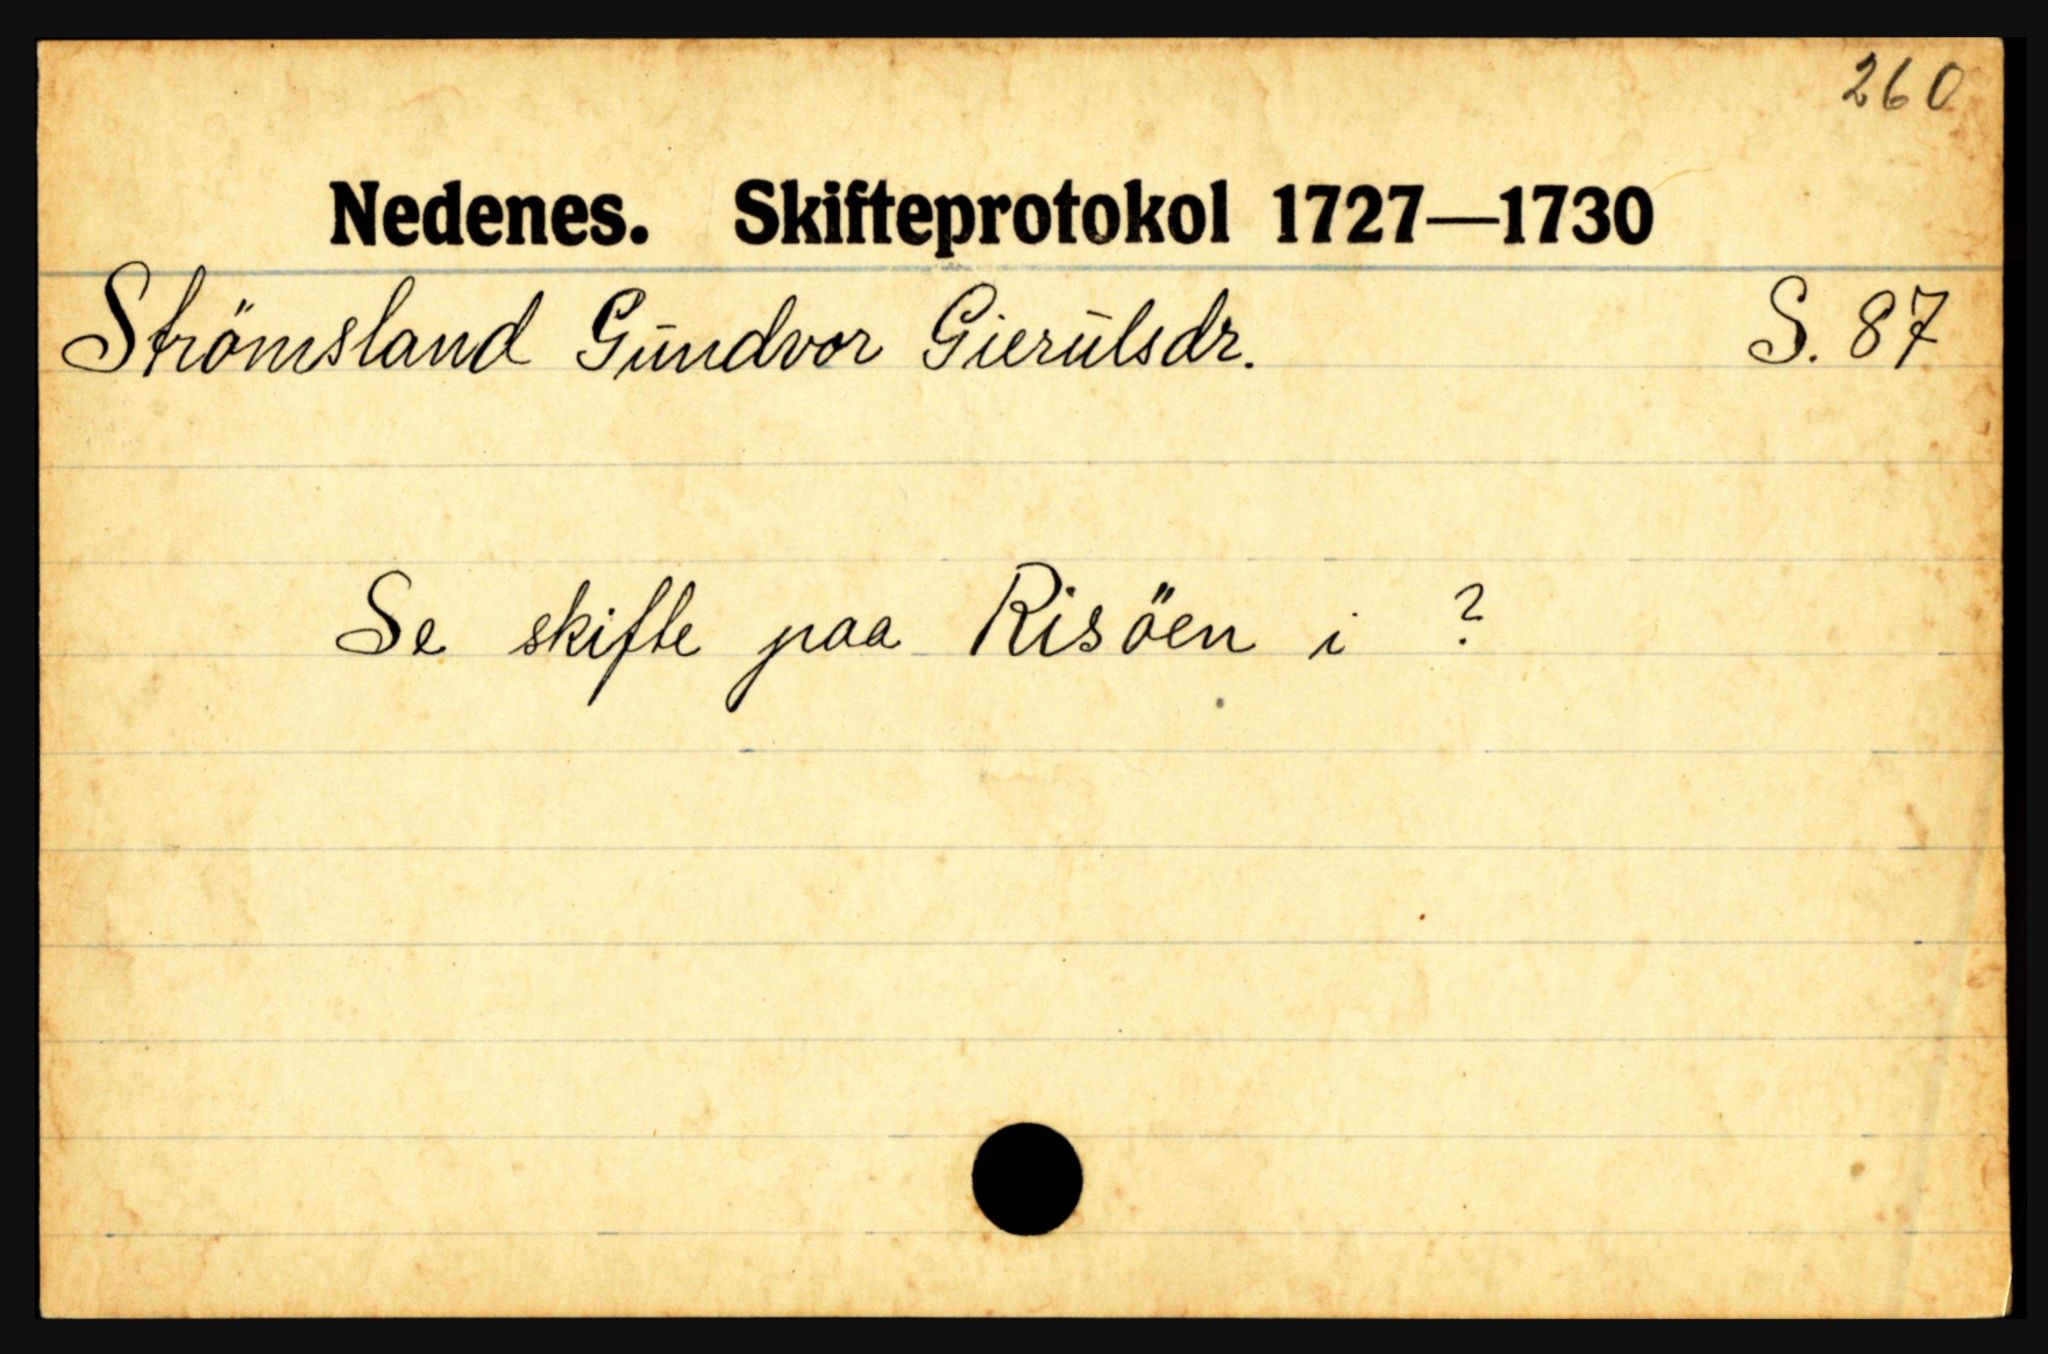 260
Nedenes. Skifteprotokol 1727—1730
Strömsland Gundvor Gierulsdr. S. 87
Se skifte paa Risöen i ?